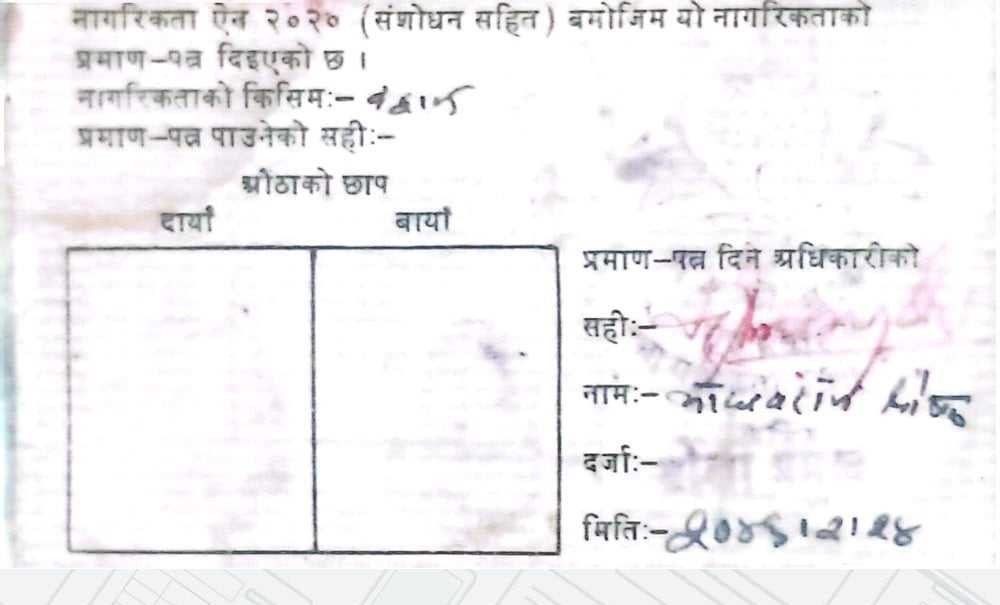 नागरिकता ऐन २०२० (संशोधन सहित) बमोजिम यो नागरिकताको
प्रमाण-पत्र दिइएको छ ।
नागरिकताको किसिम:- वंशज
प्रमाण-पत्र पाउनेको सही:-
औंठाको छाप
दायाँ बायाँ
प्रमाण-पत्र दिने अधिकारीको
सही:-
नाम:-
दर्जा:-
मिति:-